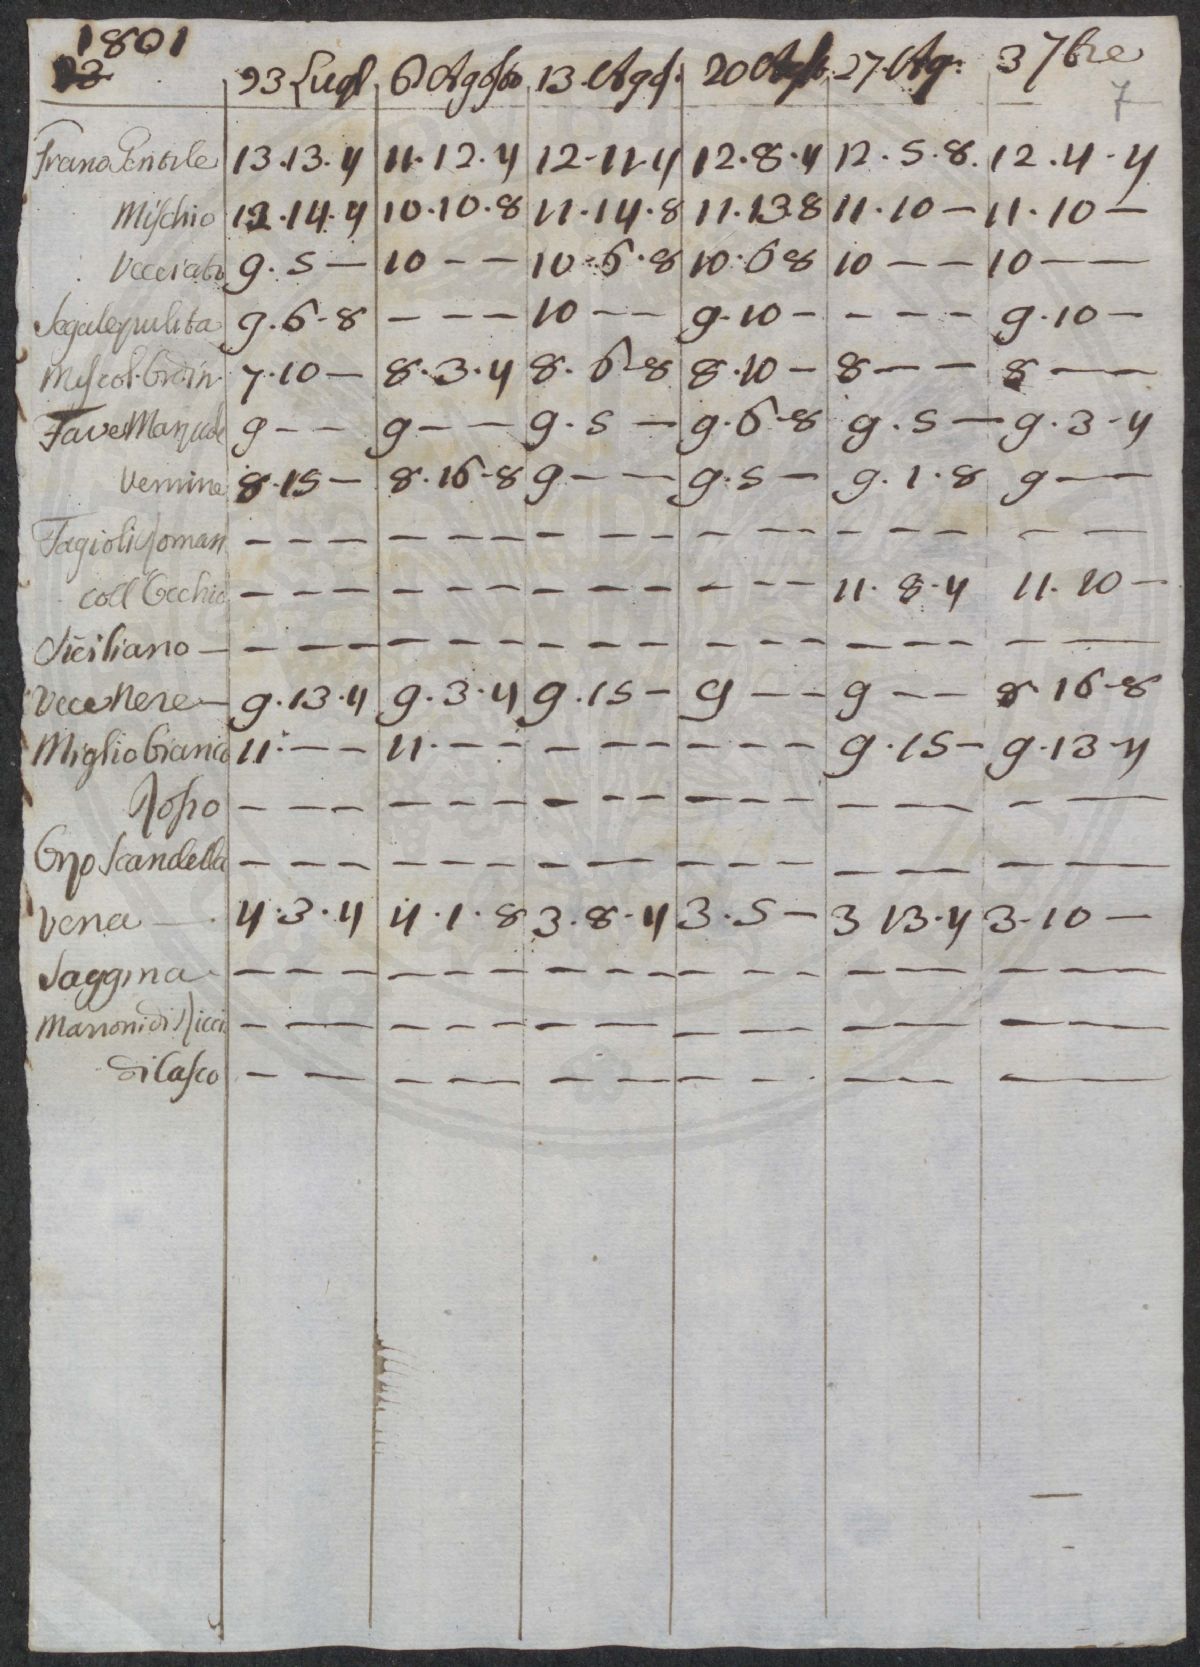 1801
23 Lugl. 6 Agosto 13. Ag. 20 27. Ag. 3 7bre
7
Grano Gentile 13.13.4 11.12.4 12-11-4 12.8.4 12.5.8. 12.4-4
Mischio 12.14.4 10.10.8 11.14.8 11.13 8 11.10 — 11.10 —
Vecciato 9.5 — 10 - - 10-6.8 10.6 8 10 — — 10 — —
Segale pulita 9.6-8 — — — 10 — — 9.10 - - - - 9.10 —
7.10 — 8.3.4 8.6-8 8.10 — 8 — — 8 — —
Fave 9 — — 9 — — 9.5 — 9.6-8 9.5 — 9.3-4
Vernine 8.15 — 8.16-8 9 — — 9.5 — 9.1.8 9 — —
Fagioli Roman — — — — — — — — — — — — — — — — —
coll'Occhio — — — — — — — — — — — — 11.8.4 11.10 —
Siciliano — — — — — — — — — — — — — — — — —
Vecce Nere — 9.13.4 9.3.4 9.15 — 9 — — 9 — — 8.16-8
Miglio bianco 11. — — 11. — — — — — — — — 9.15 — 9.13-4
Rosso — — — — — — — — — — — — — — — —
Orzo Scandella — — — — — — — — — — — — — — —
Vena — 4.3.4 4.1.8 3.8.4 3.5 — 3 13.4 3.10 —
Saggina — — — — — — — — — — — — — — — —
Marroni di Ricci — — — — — — — — — — — — —
di Casco — — — — — — — — — — — —